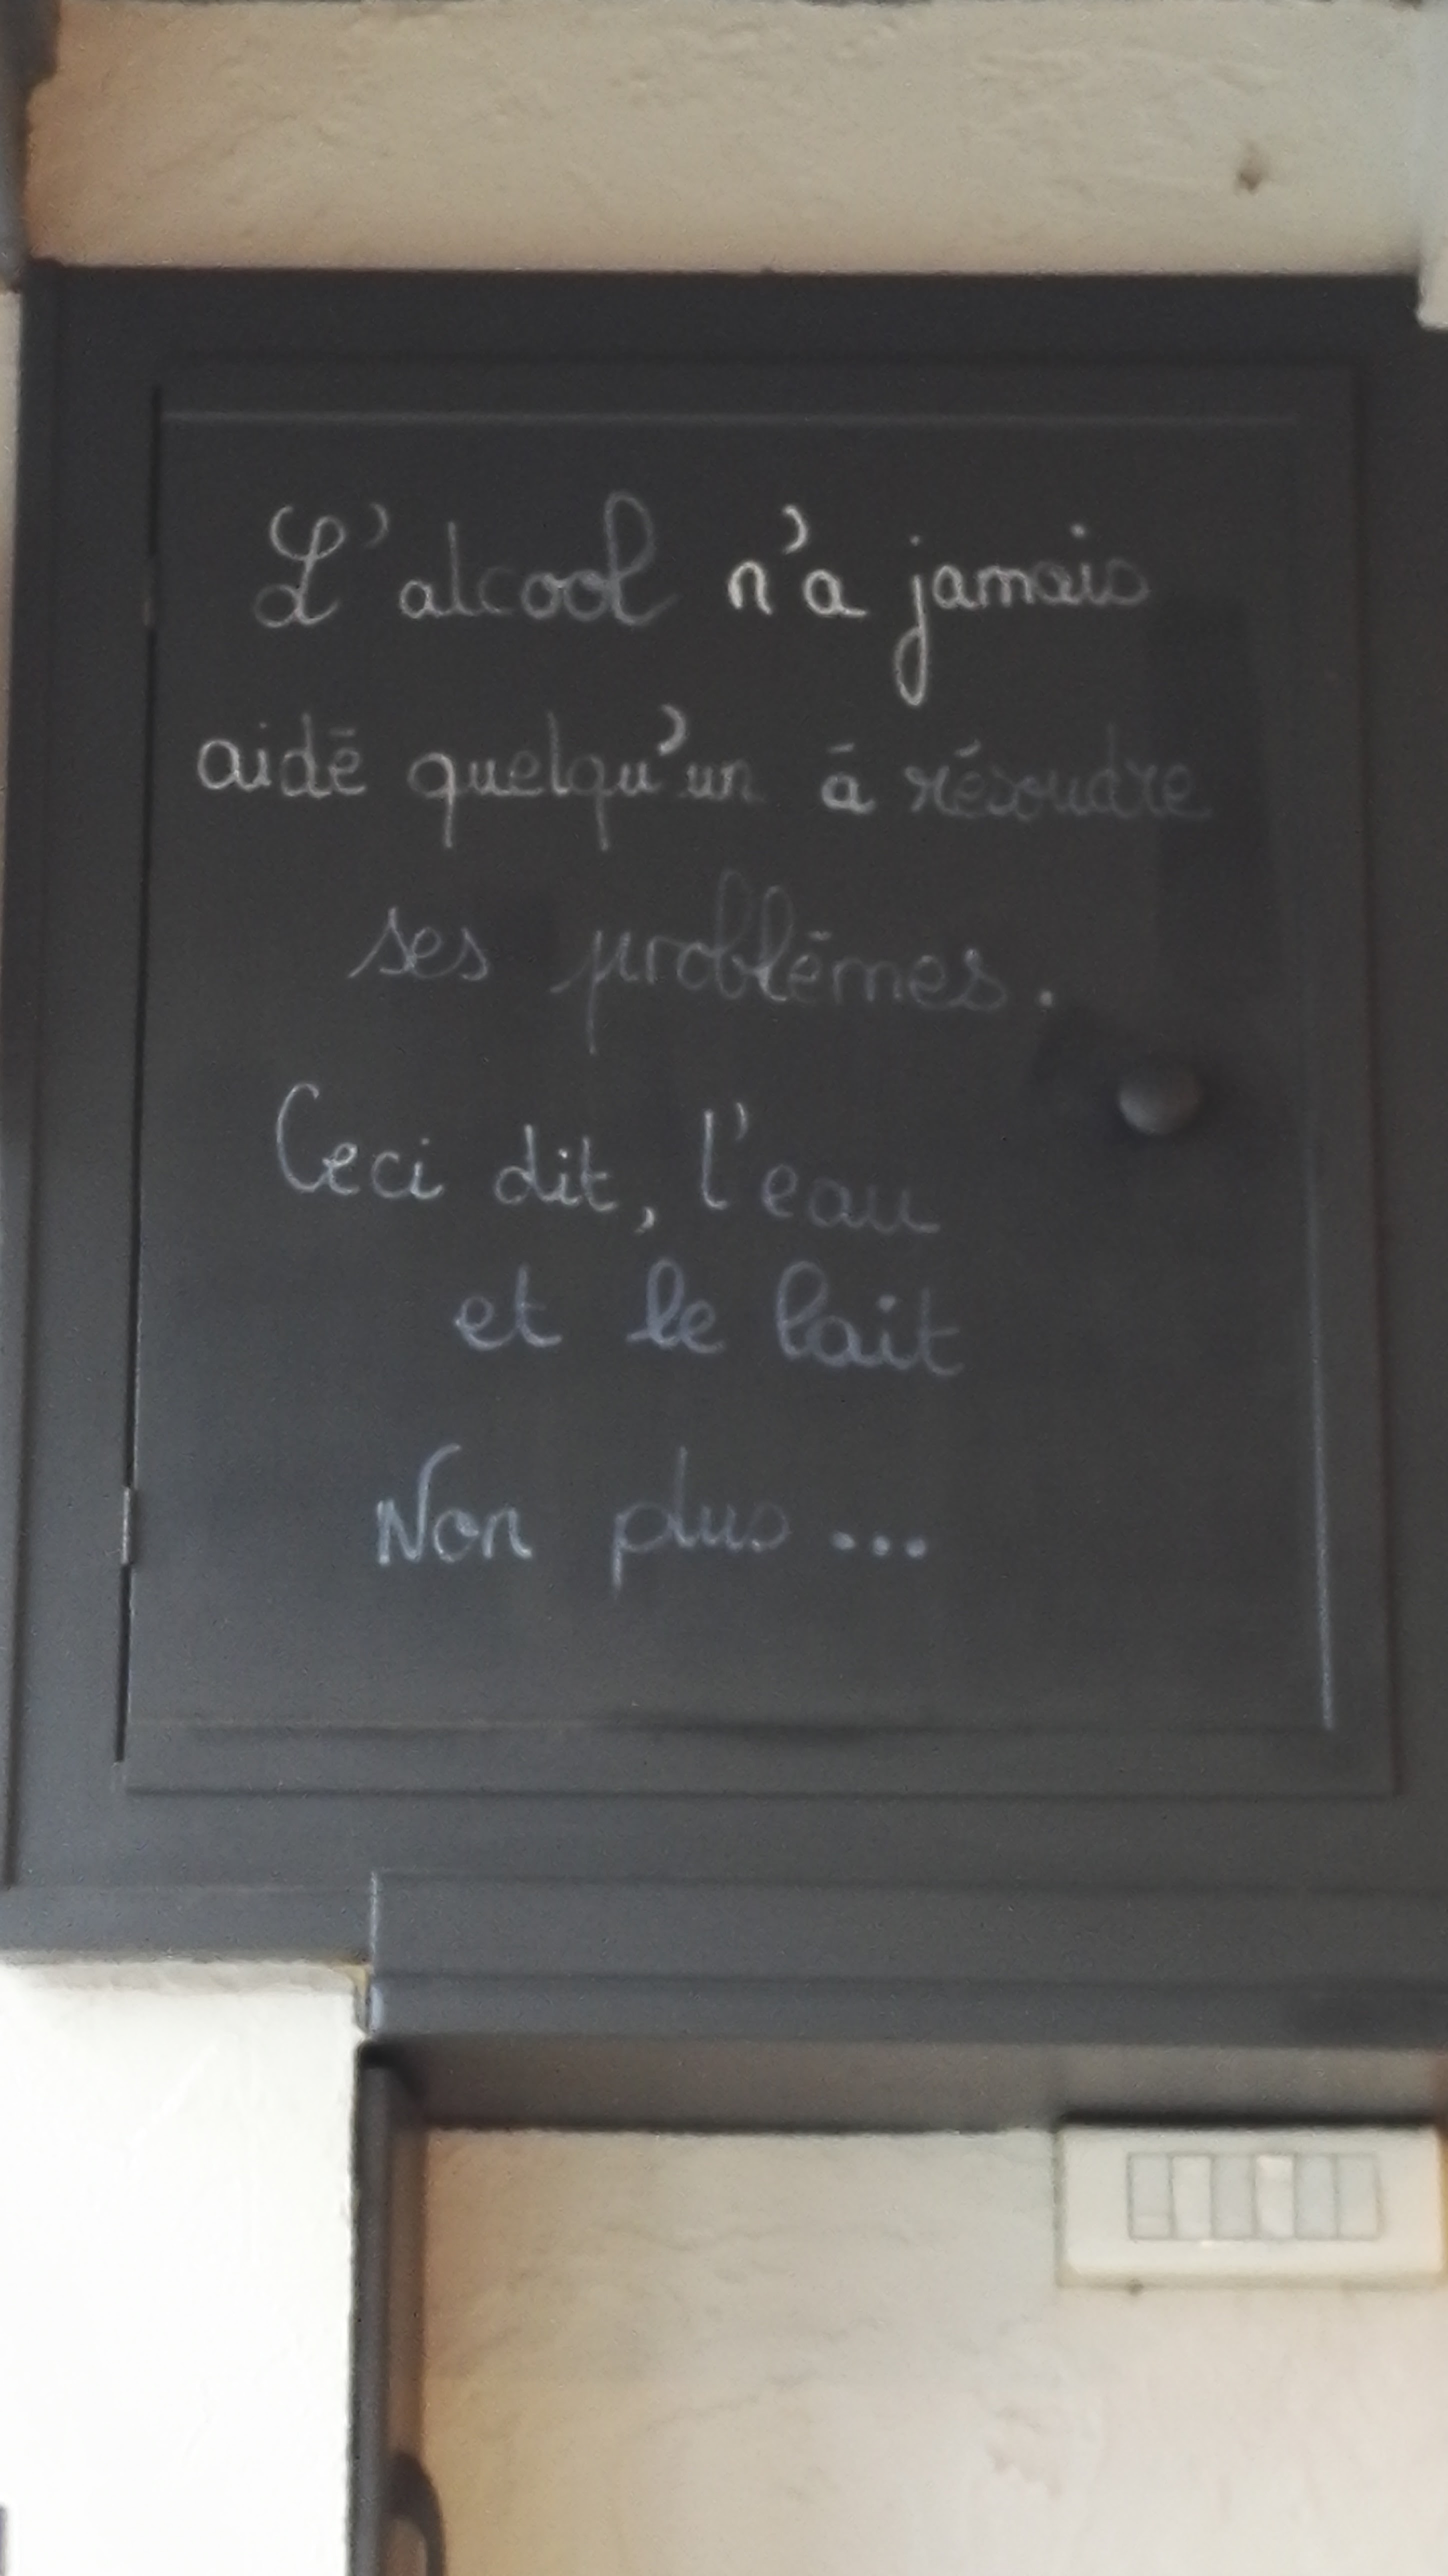 L'alcool n'a jamais
aidé quelqu'un à résoudre
ses problèmes.
Ceci dit, l'eau
et le lait
Non plus...